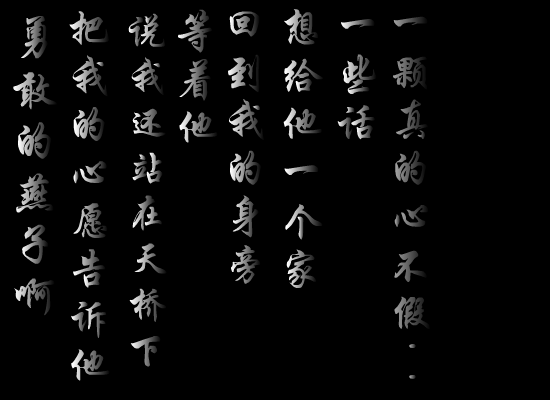 勇敢的燕子啊
把我的心愿告诉他
说我还站在天桥下
等着他
回到我的身旁
想给他一个家
一些话
一颗真的心不假..